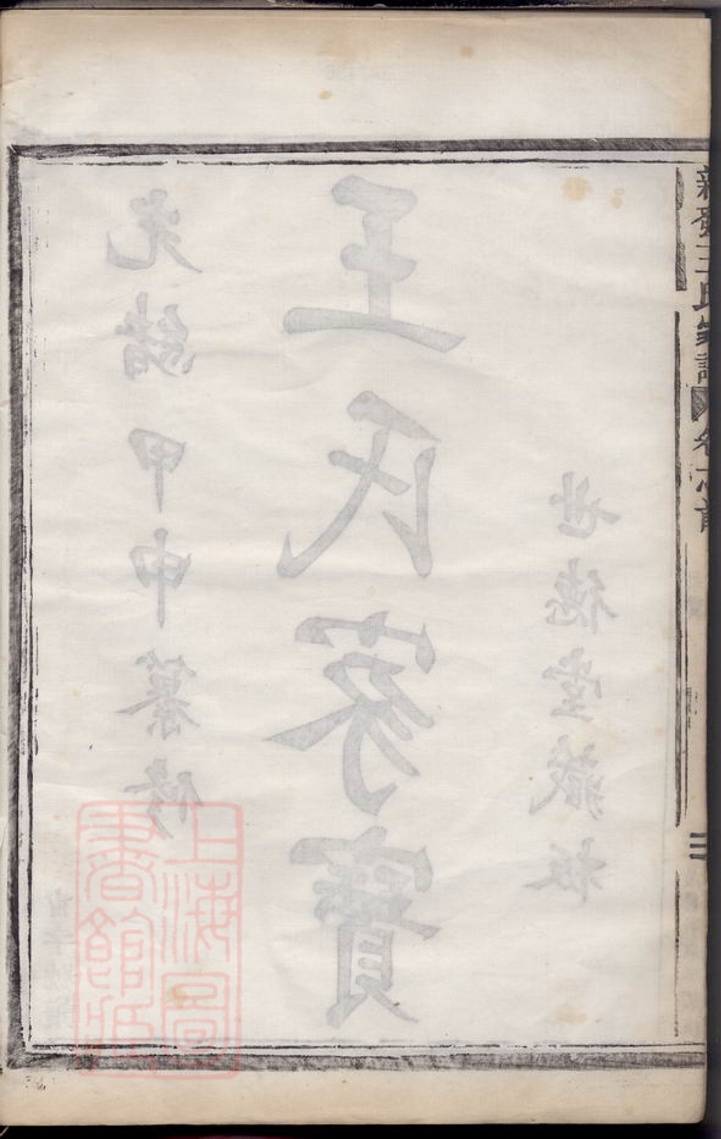 新發王氏
卷之首
三
光緒甲申纂修
王氏家寶
世德堂藏板
上海圖
書館藏